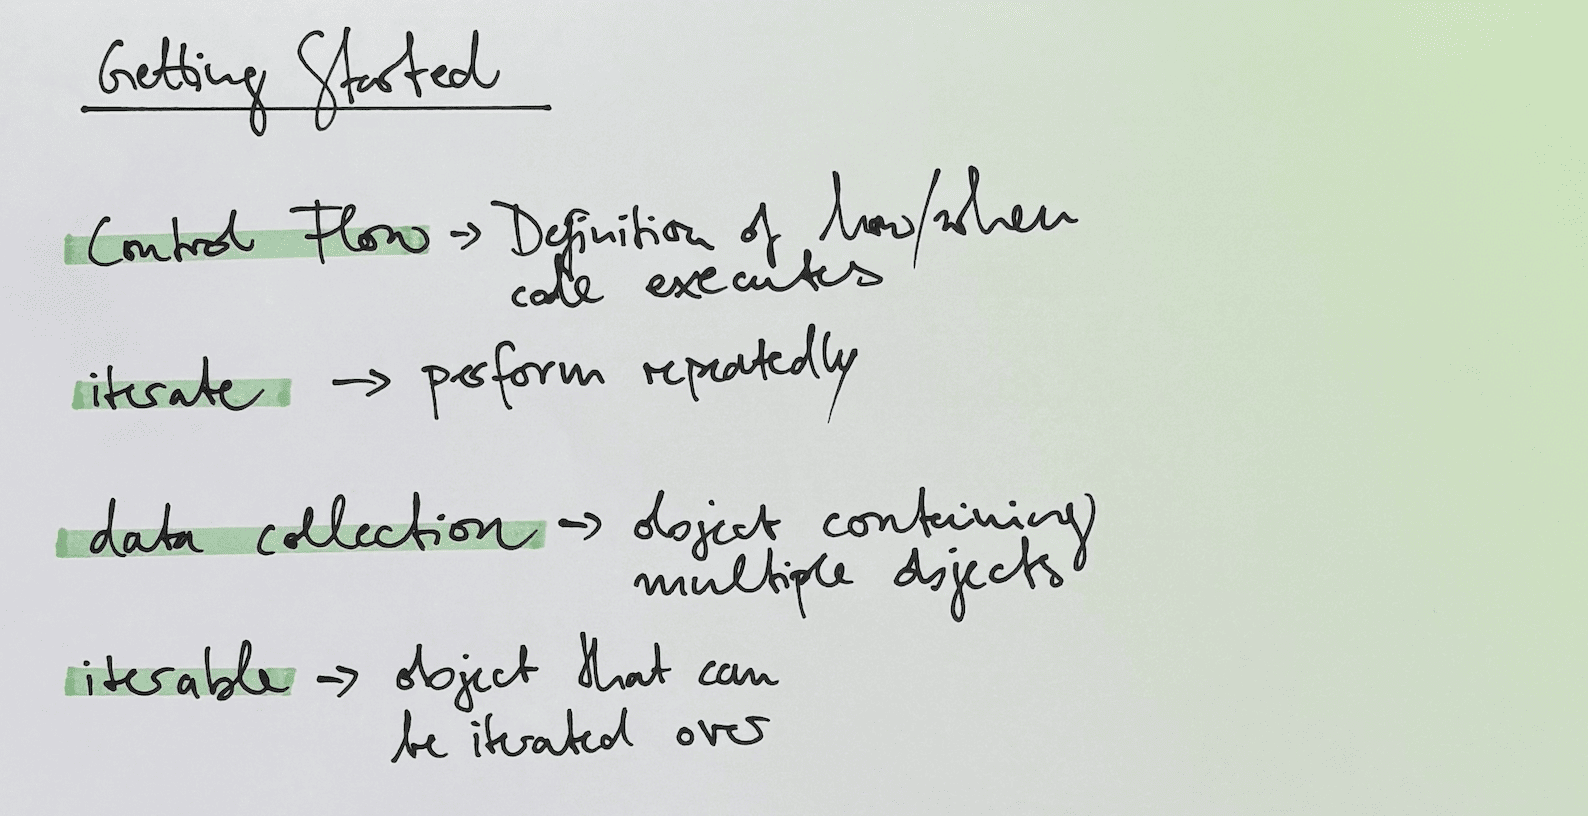 Getting Started
Control Flow → Definition of how/when
code executes
iterate → perform repeatedly
data collection → object containing
multiple objects
iterable → object that can
be iterated over